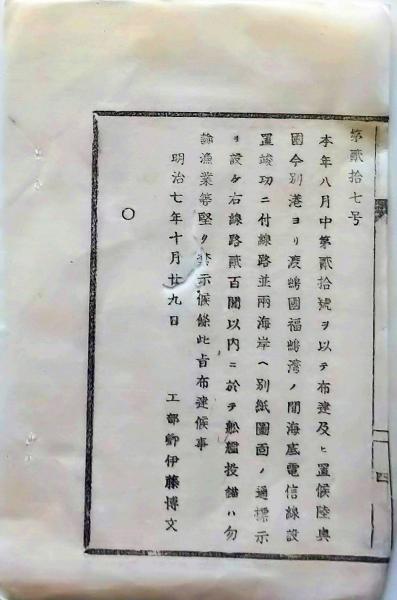 第貳拾七号
本年八月中第貳拾號ヲ以テ布達及ヒ置候陸奥
國今別港ヨリ渡嶋國福嶋湾ノ間海底電信線設
置竣功ニ付線路並兩海岸ヘ別紙圖面ノ通標示
ヲ設ケ右線路貳百間以内ニ於テ舩艦投錨ハ勿
論漁業等堅ク禁示候條此旨布達候事
明治七年十月廿九日
工部卿伊藤博文